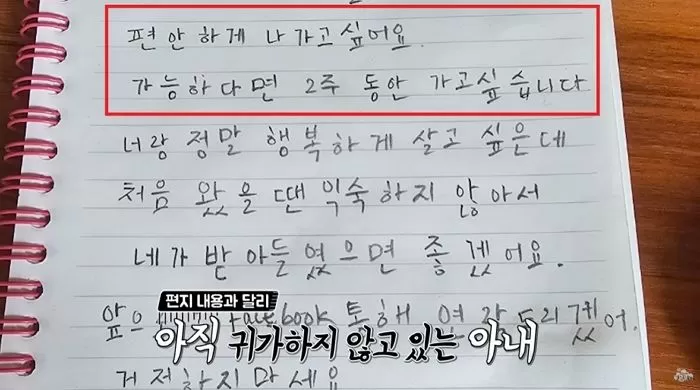 편안하게 나가고싶어요.
가능하다면 2주 동안 가고싶습니다
너랑 정말 행복하게 살고 싶은데
처음 왔을 땐 익숙하지 않아서
네가 받아들였으면 좋겠어요.
앞으 통해
편지 내용과 달리
아직 귀가하지 않고 있는 아내
거저하지마세요